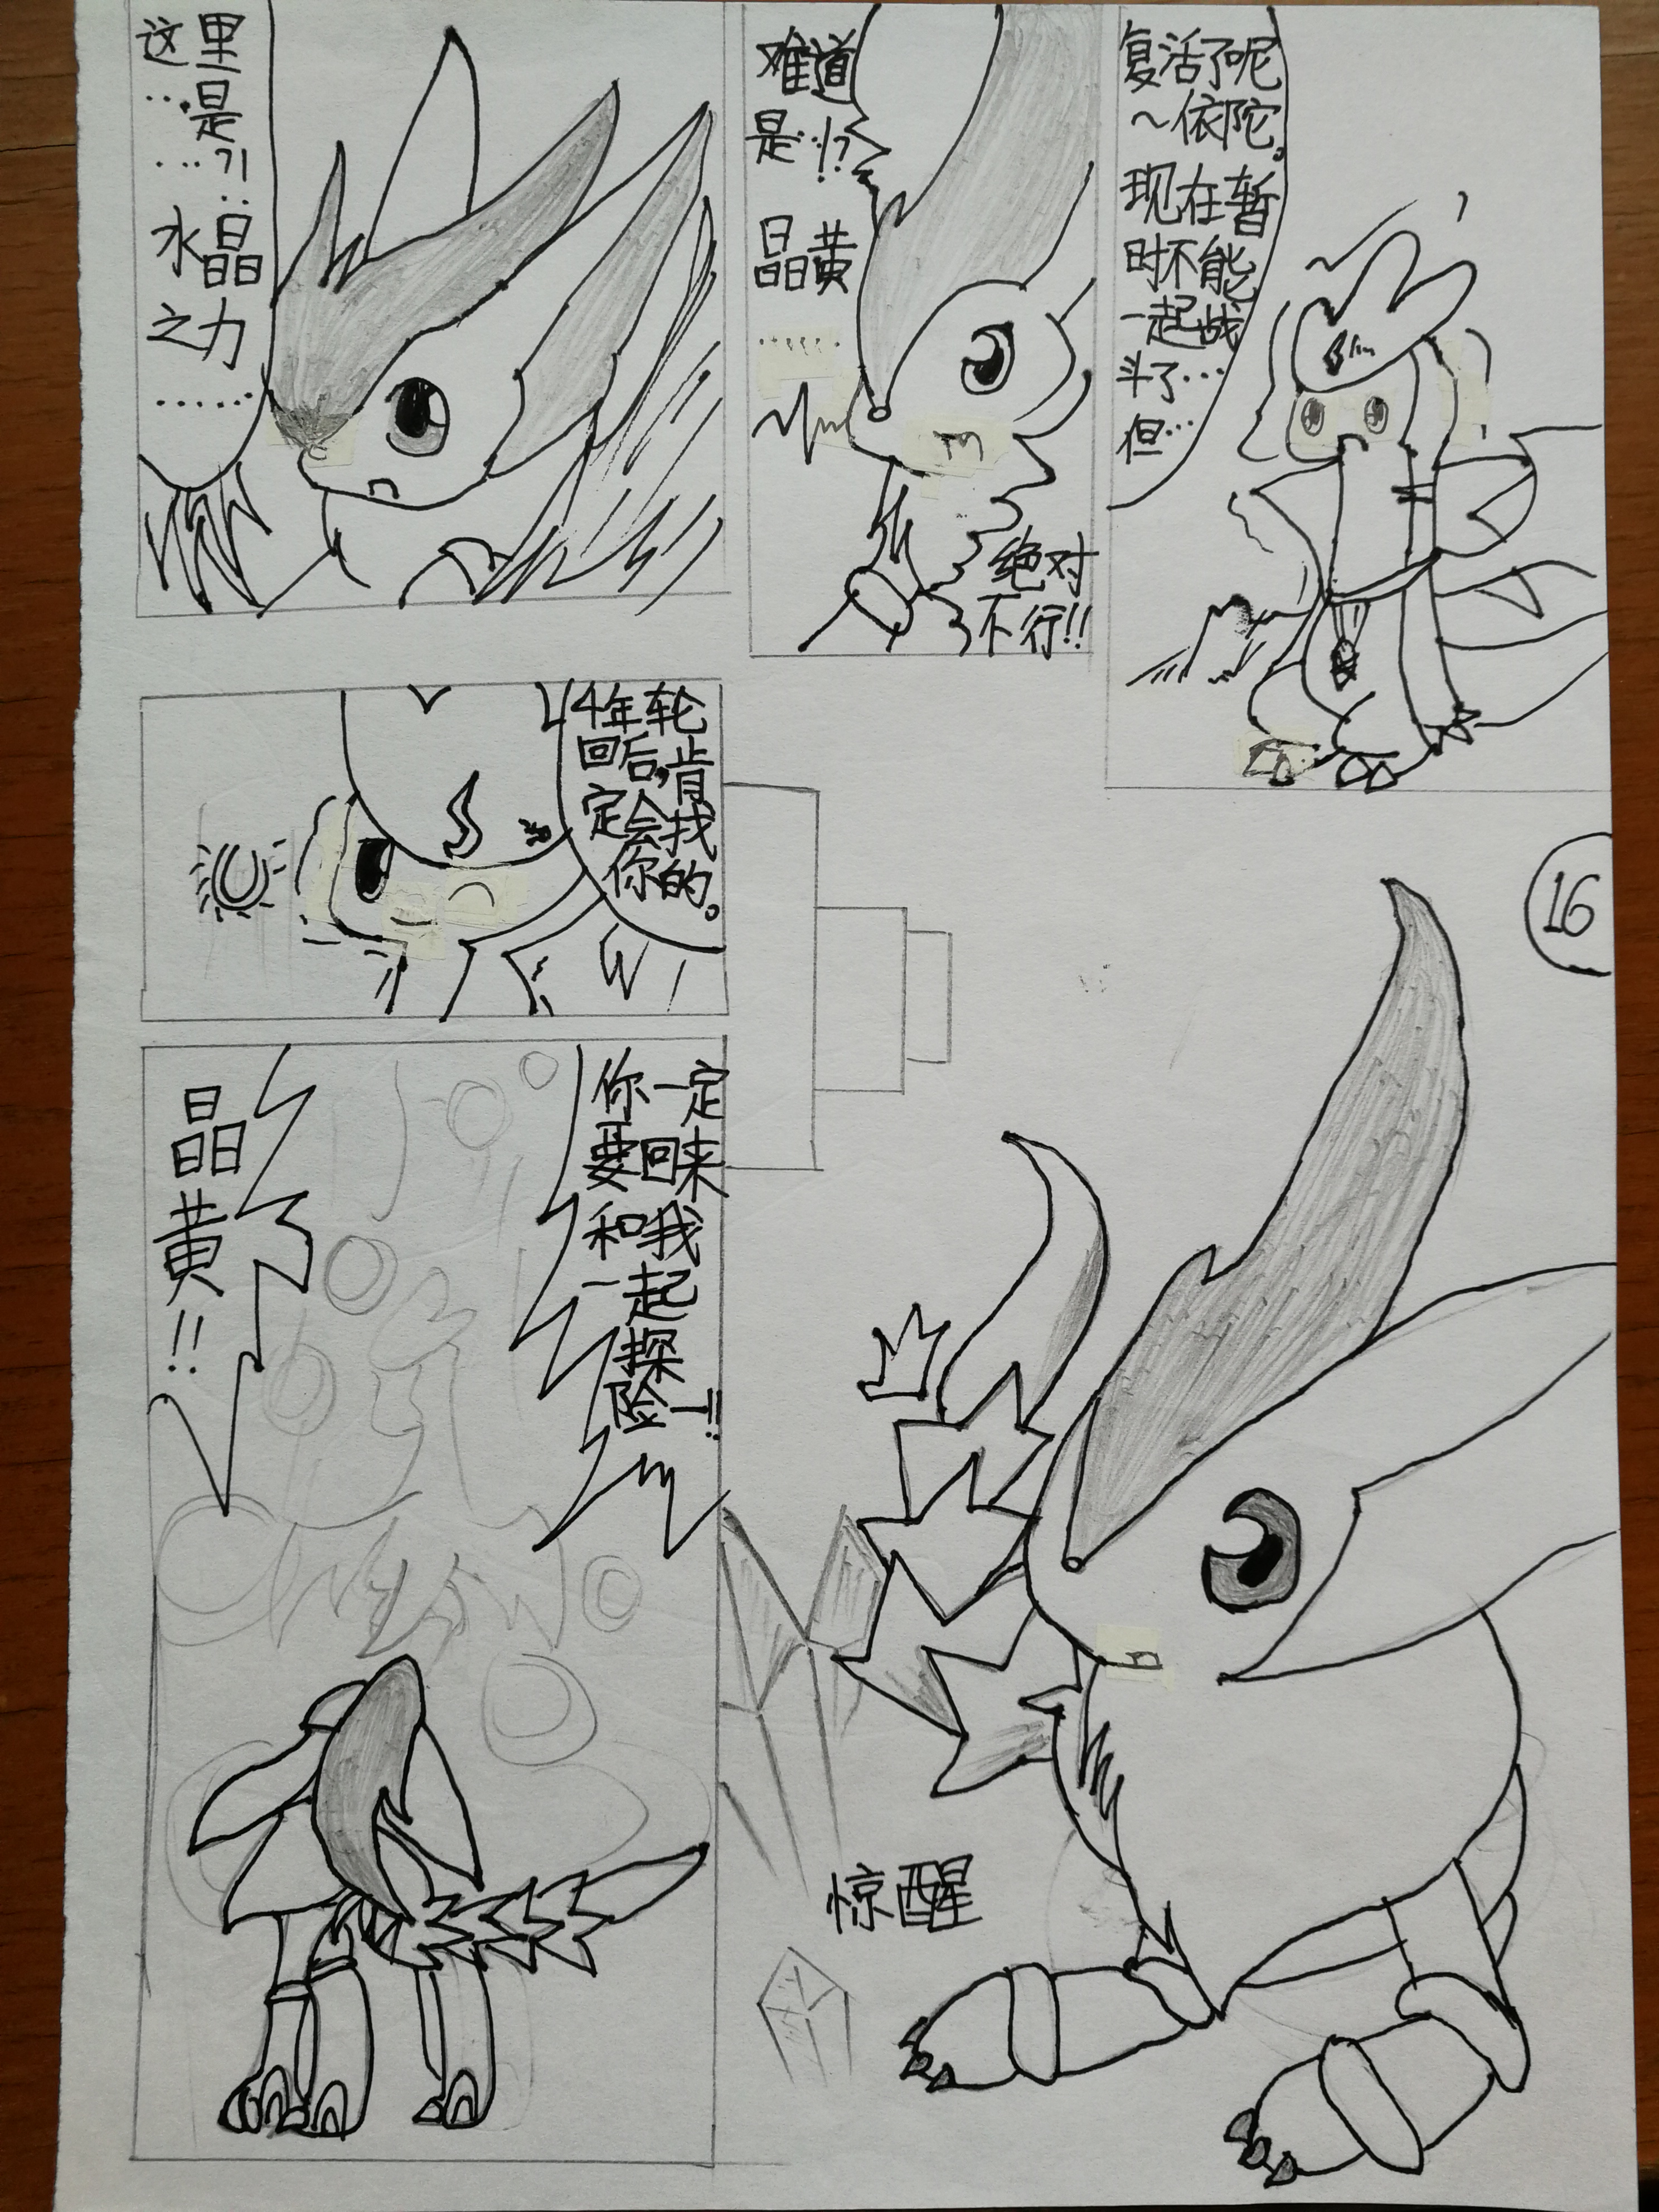 这里
…是
…?!…
水晶
之力
……
难道
是…!?
晶黄
……
绝对
不行!!
复活了呢
～依陀。
现在暂
时不能
一起战
斗了…
但…
4年轮
回后,肯
定会找
你的。
16
你一定
要回来
和我
一起
探
险—!!
晶
黄!!
惊醒